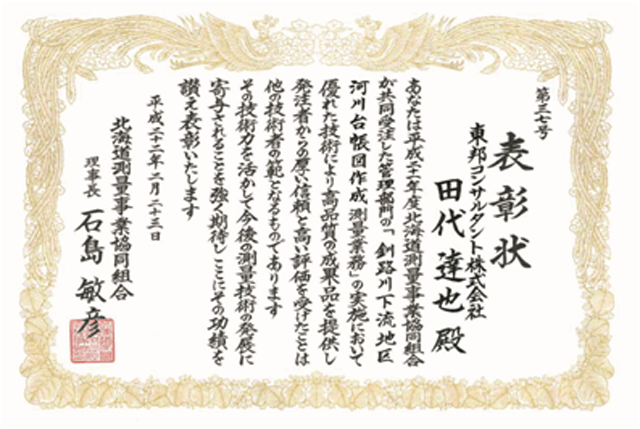 第三七号
表彰状
東邦コンサルタント株式会社
田代達也殿
あなたは平成二十一年度北海道測量事業協同組合
が共同受注した管理部門の「釧路川下流地区
河川台帳図作成測量業務」の実施において
優れた技術により高品質の成果品を提供し
発注者からの厚い信頼と高い評価を受けたことは
他の技術者の範となるものであります
その技術力を活かして今後の測量技術の発展に
寄与されることを強く期待しここにその功績を
讃え表彰いたします
平成二十二年二月二十三日
北海道測量事業協同組合
理事長 石島敏彦